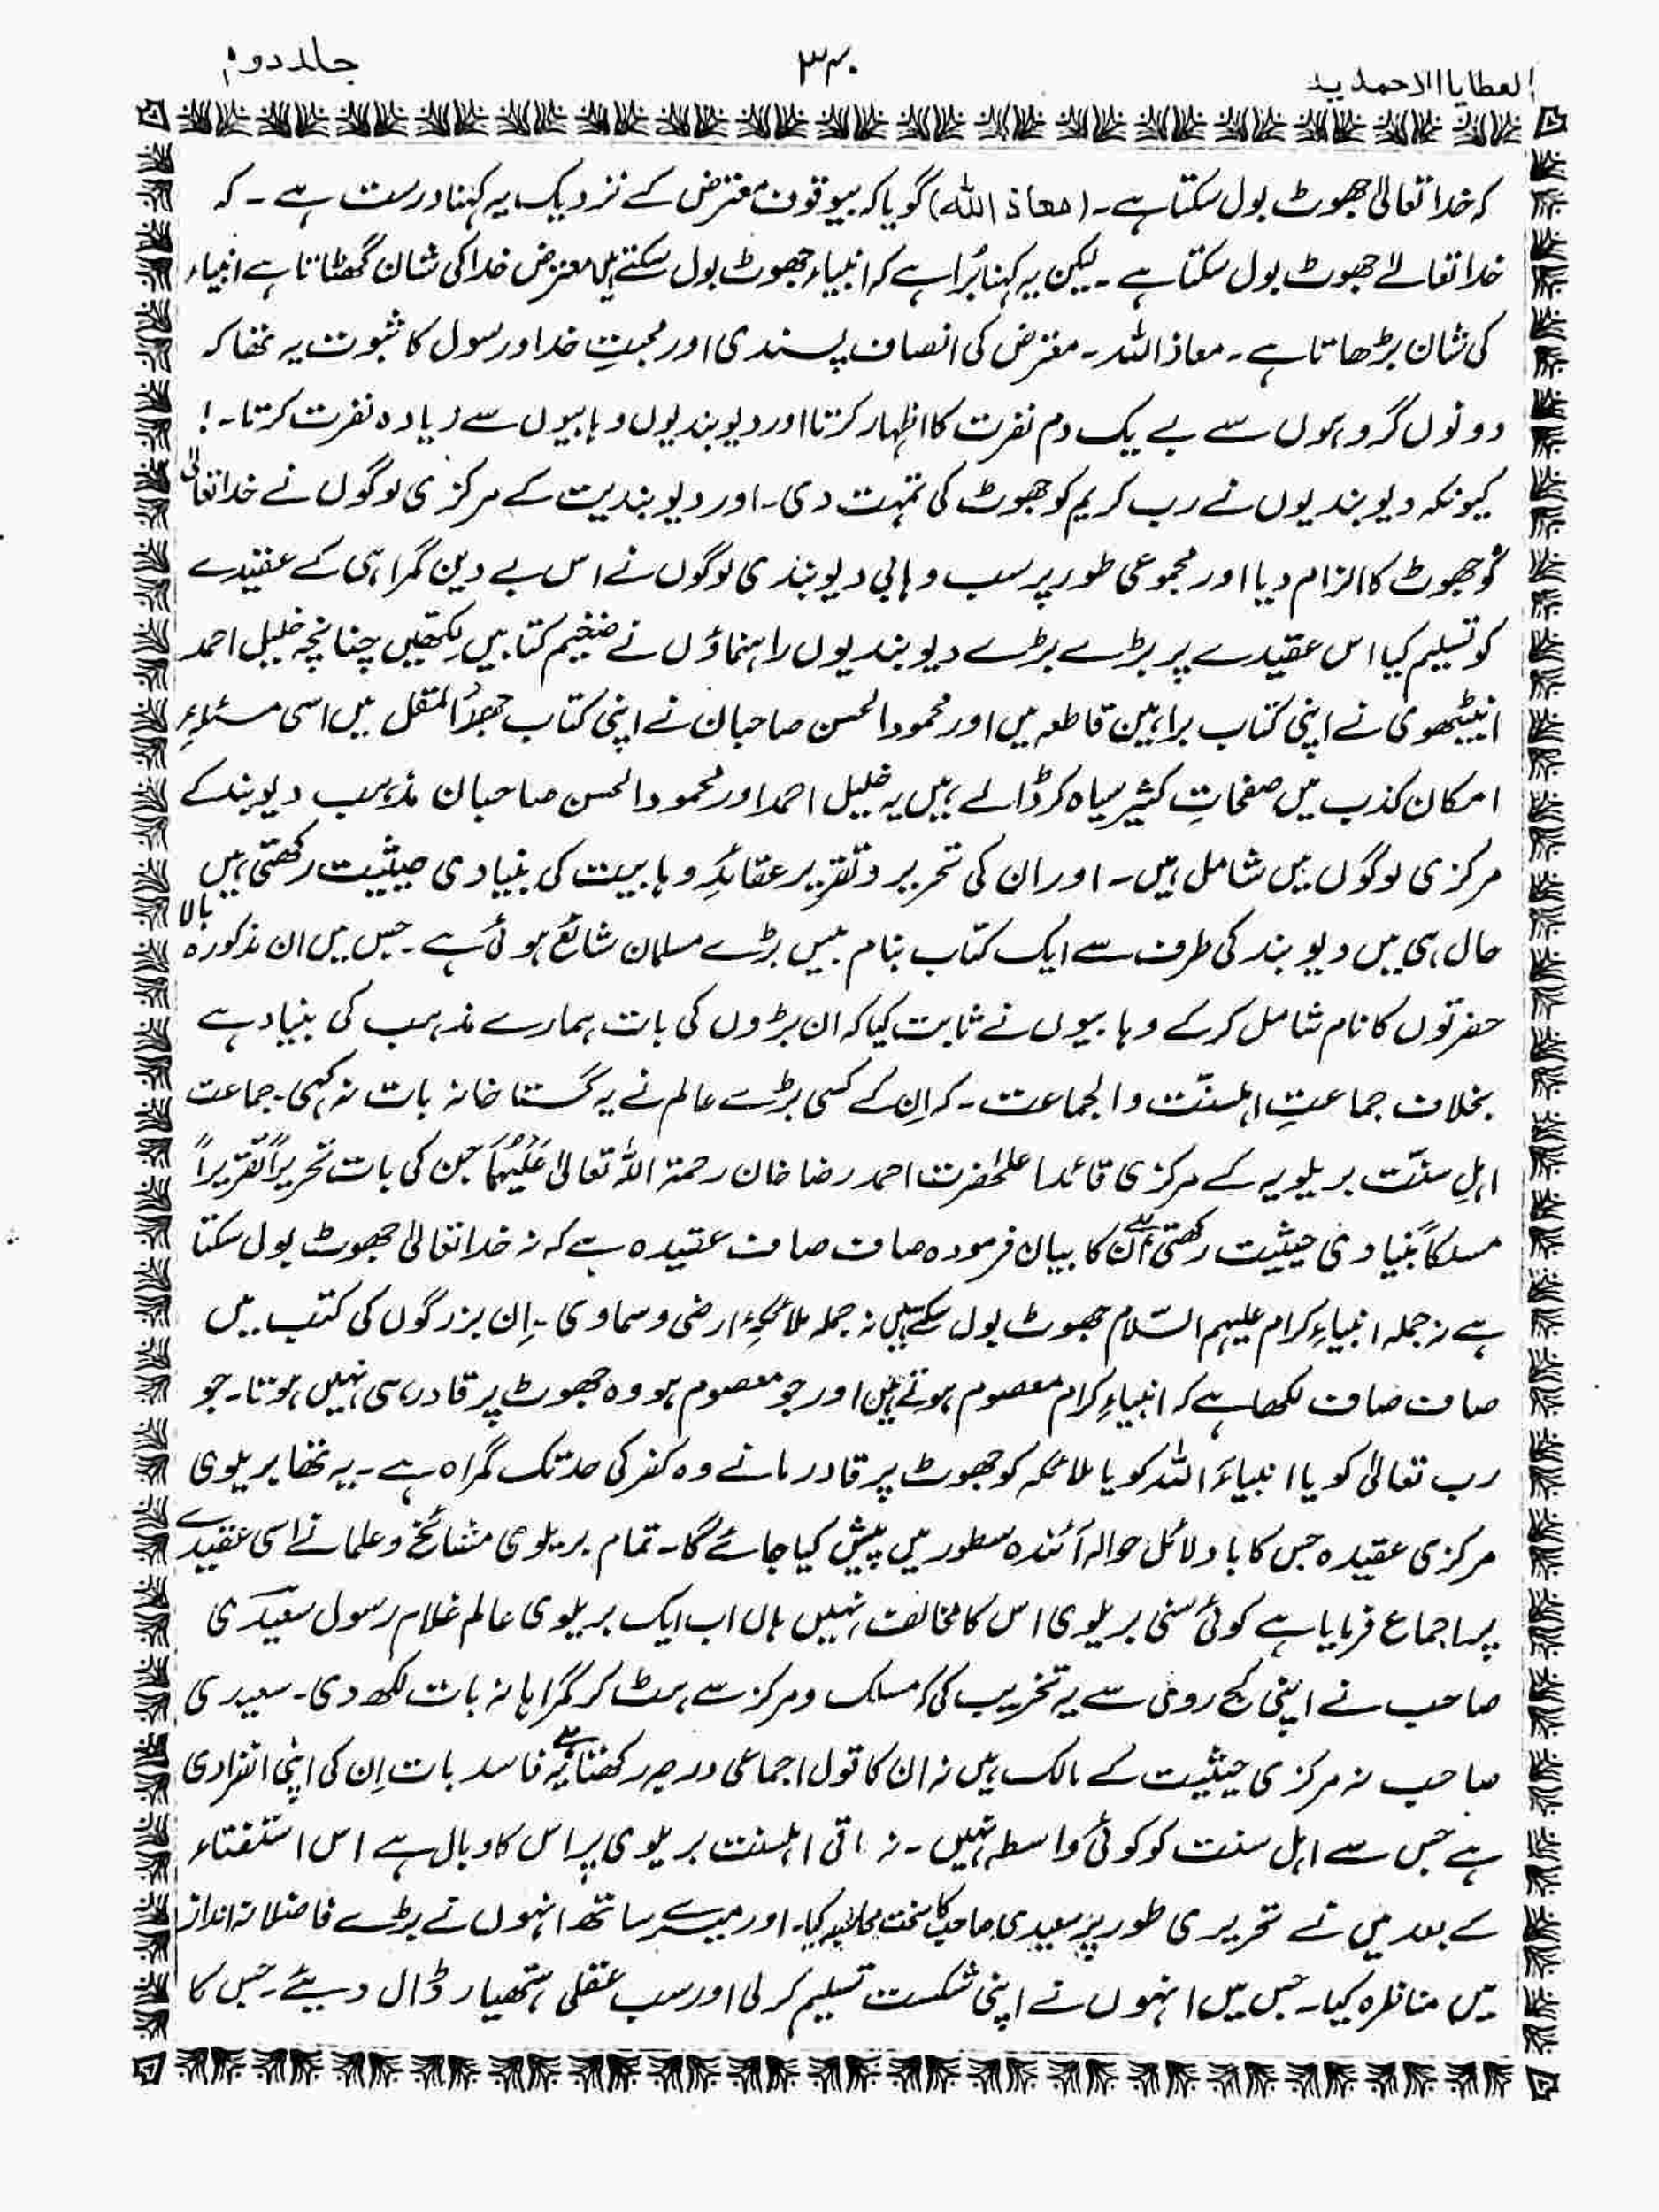 العطایا الاحمدیہ
۳۴۰
جلد دوم
کہ خدا تعالیٰ جھوٹ بول سکتا ہے۔ (معاذ اللہ) گویا کہ بیوقوف معترض کے نزدیک یہ کہنا درست ہے ۔ کہ
خدا تعالےٰ جھوٹ بول سکتا ہے ۔ لیکن یہ کہنا بُرا ہے کہ انبیاء جھوٹ بول سکتے ہیں معترض خدا کی شان گھٹاتا ہے انبیاء
کی شان بڑھاتا ہے ۔ معاذ اللہ ۔ معترض کی انصاف پسندی اور محبتِ خدا و رسول کا ثبوت یہ تھا کہ
دونوں گروہوں سے بے یک دم نفرت کا اظہار کرتا اور دیوبندیوں وہابیوں سے زیادہ نفرت کرتا ۔!
کیونکہ دیوبندیوں نے رب کریم کو جھوٹ کی تہمت دی ۔ اور دیوبندیت کے مرکزی لوگوں نے خدا تعالیٰ
کو جھوٹ کا الزام دیا اور مجموعی طور پر سب وہابی دیوبندی لوگوں نے اس بے دین گمراہی کے عقیدے
کو تسلیم کیا اس عقیدے پر بڑے بڑے دیوبندیوں راہنماؤں نے ضخیم کتابیں لکھیں چنانچہ خلیل احمد
انبیٹھوی نے اپنی کتاب براہین قاطعہ میں اور محمود الحسن صاحبان نے اپنی کتاب جہدُ المقل میں اسی مسئلہءِ
امکان کذب میں صفحاتِ کثیر سیاہ کر ڈالے ہیں یہ خلیل احمد اور محمود الحسن صاحبان مذہب دیوبند کے
مرکزی لوگوں میں شامل ہیں ۔ اور ان کی تحریر و تقریر عقائدِ وہابیت کی بنیادی حیثیت رکھتی ہیں
حال ہی میں دیوبند کی طرف سے ایک کتاب بنام بیس بڑے مسلمان شائع ہوئی ہے ۔ جس میں ان مذکورہ بالا
حضرتوں کا نام شامل کر کے وہابیوں نے ثابت کیا کہ ان بڑوں کی بات ہمارے مذہب کی بنیاد ہے
بخلاف جماعتِ اہلسنّت والجماعت ۔ کہ اِن کے کسی بڑے عالم نے یہ گستاخانہ بات نہ کہی ۔ جماعت
اہلِ سنّت بریلویہ کے مرکزی قائد اعلحٰضرت احمد رضا خان رحمۃ اللہ تعالیٰ عَلَیْہِمَا جن کی بات تحریراً تقریراً
مسلکاً بنیادی حیثیت رکھتی ہے ان کا بیان فرمودہ صاف صاف عقیدہ ہے کہ نہ خدا تعالیٰ جھوٹ بول سکتا
ہے نہ جملہ انبیاءِ کرام علیہم السّلام جھوٹ بول سکتے ہیں نہ جملہ ملائکہءِ ارضی و سماوی ۔ اِن بزرگوں کی کتب میں
صاف صاف لکھا ہے کہ انبیاءِ کرام معصوم ہوتے ہیں اور جو معصوم ہو وہ جھوٹ پر قادر ہی نہیں ہوتا ۔ جو
رب تعالیٰ کو یا انبیاءُ اللہ کو یا ملائکہ کو جھوٹ پر قادر مانے وہ کفر کی حد تک گمراہ ہے ۔ یہ تھا بریلوی
مرکزی عقیدہ جس کا با دلائل حوالہ آئندہ سطور میں پیش کیا جائے گا ۔ تمام بریلوی مشائخ و علما نے اسی عقیدے
پر اجماع فرمایا ہے کوئی سنی بریلوی اس کا مخالف نہیں ہاں اب ایک بریلوی عالم غلام رسول سعیدی
صاحب نے اپنی کج روی سے یہ تخریب کی کہ مسلک و مرکز سے ہٹ کر گمراہانہ بات لکھ دی ۔ سعیدی
صاحب نہ مرکزی حیثیت کے مالک ہیں نہ ان کا قول اجماعی درجہ رکھتا ہے یہ فاسد بات اِن کی اپنی انفرادی
ہے جس سے اہل سنت کو کوئی واسطہ نہیں ۔ نہ ہی اہلسنت بریلوی پر اس کا وبال ہے اس استفتاء
کے بعد میں نے تحریری طور پر سعیدی صاحب کا سخت محاسبہ کیا ۔ اور میرے ساتھ انہوں نے بڑے فاضلانہ انداز
میں مناظرہ کیا ۔ جس میں انہوں نے اپنی شکست تسلیم کر لی اور سب عقلی ہتھیار ڈال دیئے ۔ جس کا